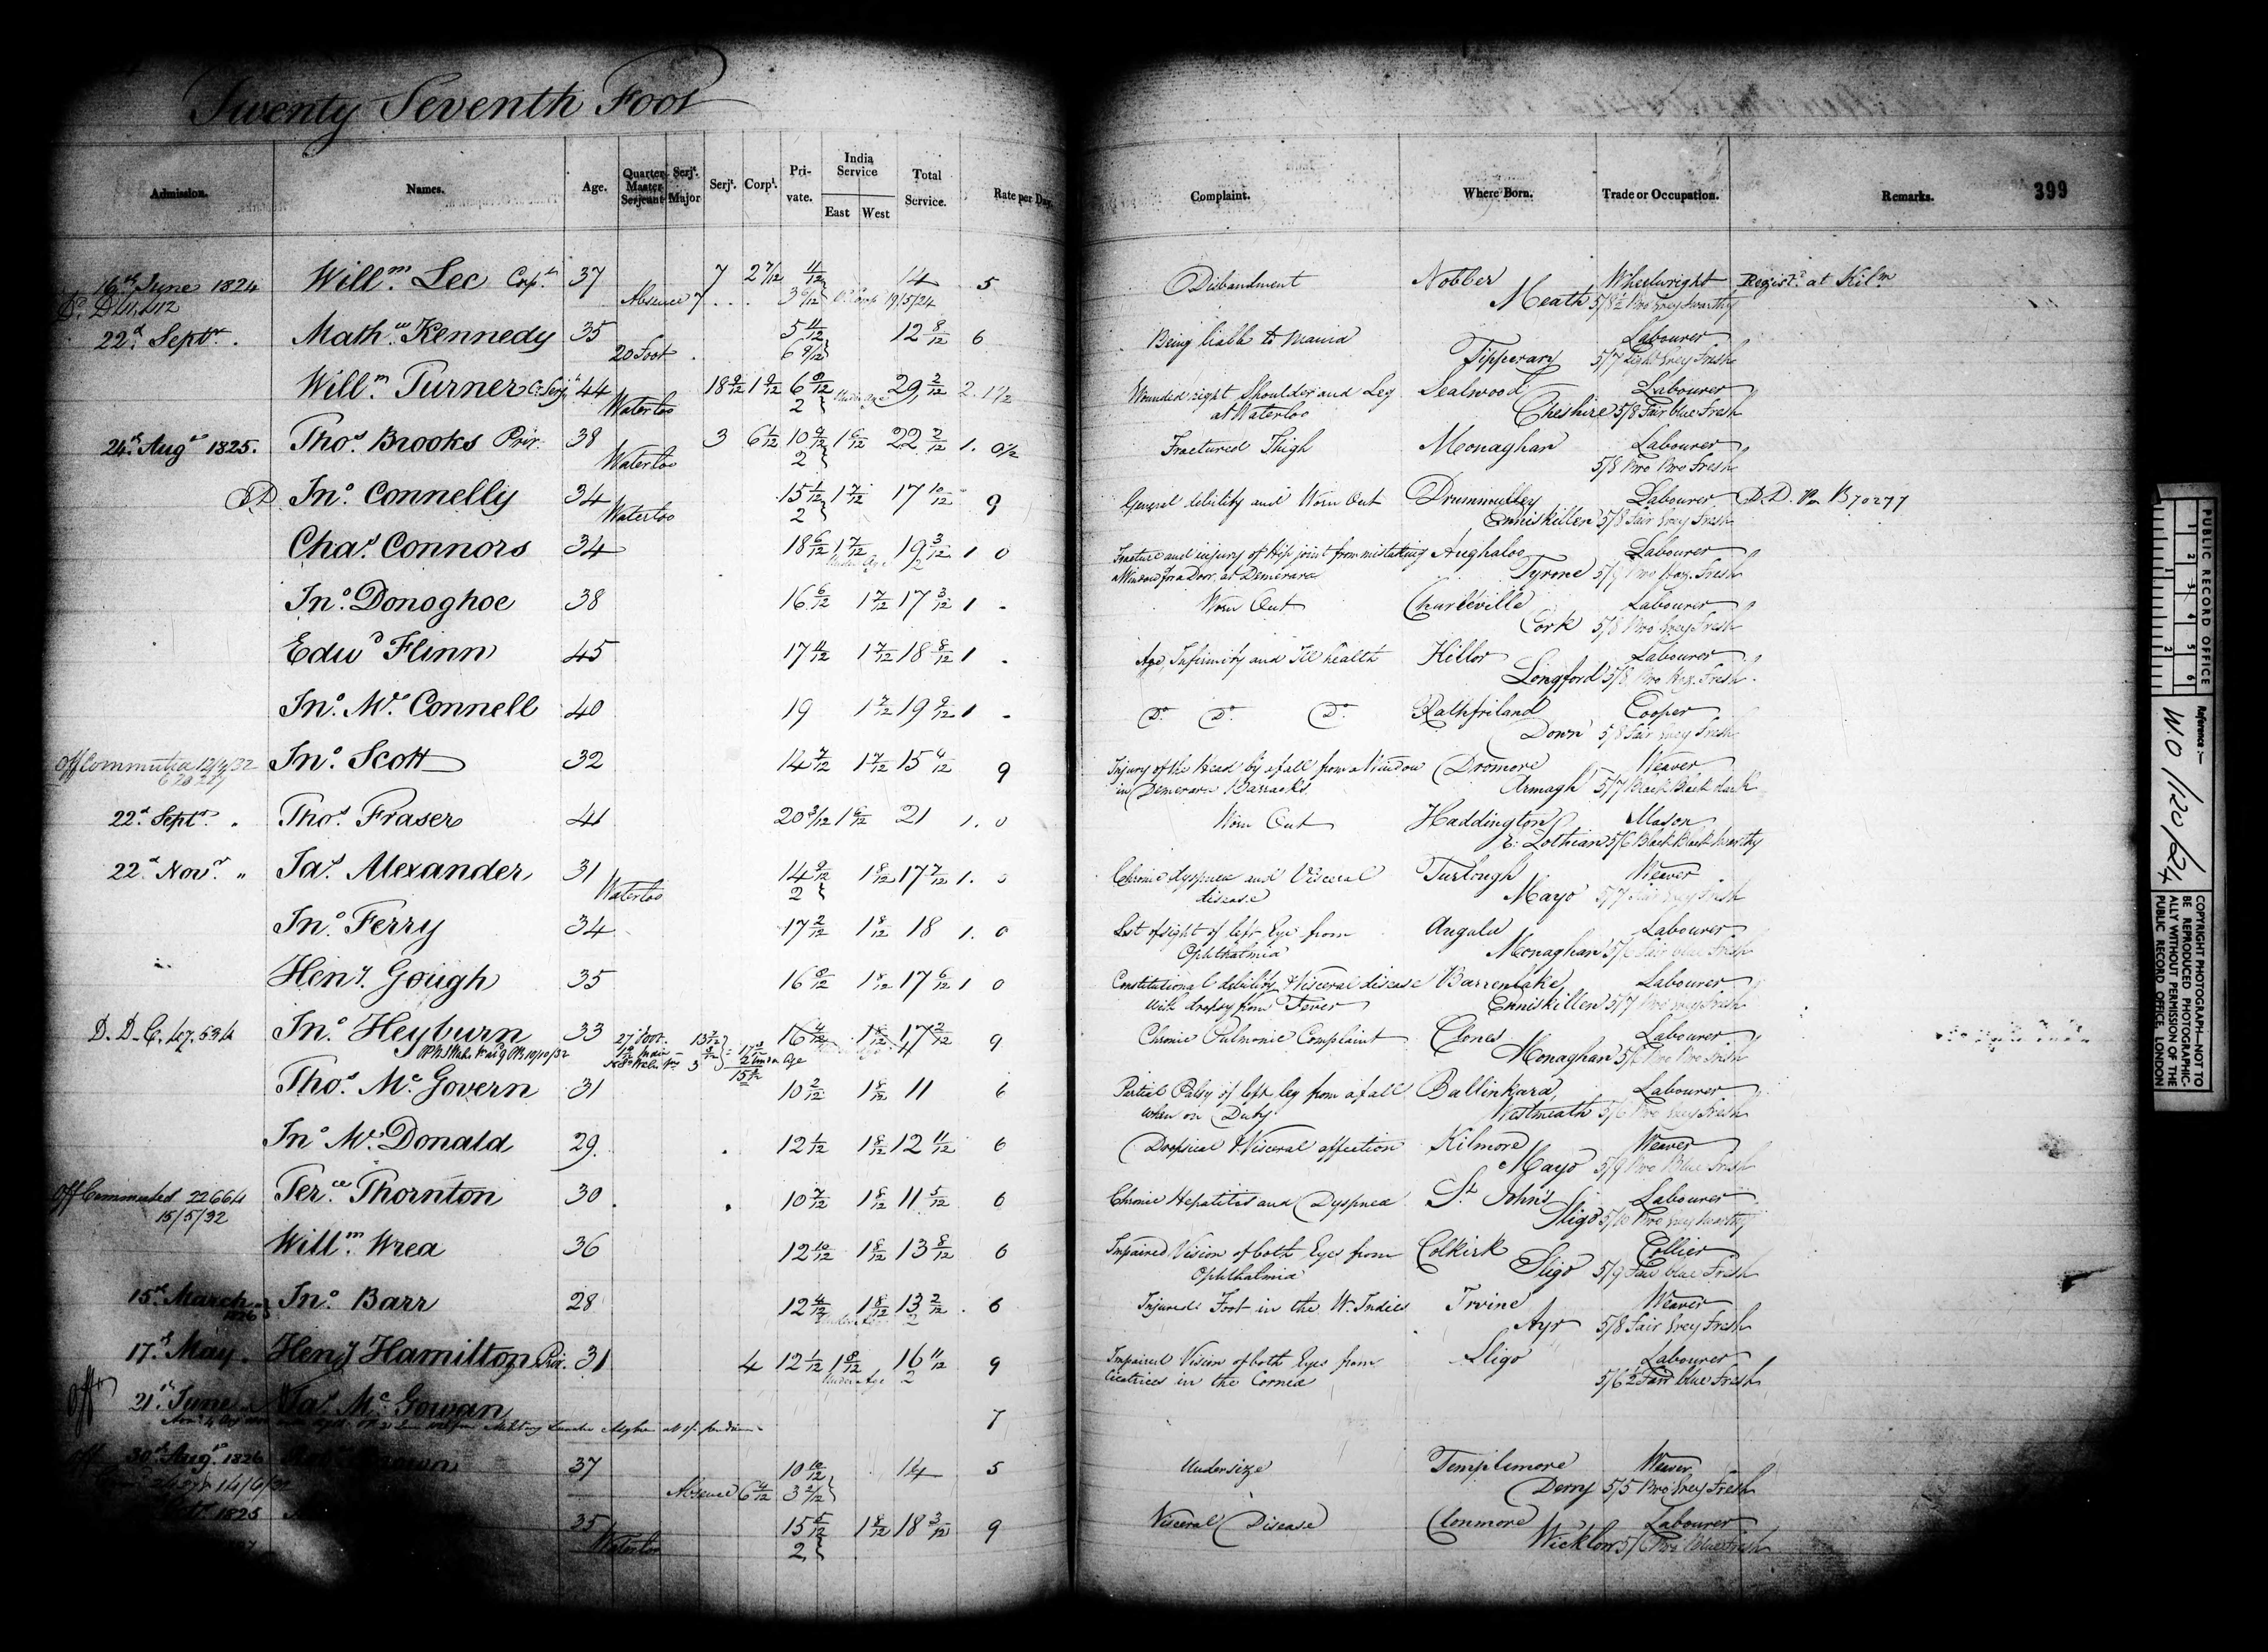 Twenty Seventh Foot
399
Admission. Names. Age. Quarter Master Serjeant Serjt. Major Serjt. Corpl. Private. India Service East West Total Service. Rate per Day. Complaint. Where Born. Trade or Occupation. Remarks.
16th June 1824 Willm. Lee Corpl. 37 7 2 7/12 14 5 Disbandment Nobber Wheelwright Regist.d at Kilm
Absence 7 Meath
22d Septr. Mathw. Kennedy 35 5 11/12 12 8/12 6 Being liable to Mania Labourer
20 Foot 6 9/12 Tipperary 5/7 Light Grey Fresh
Willm. Turner 44 29 2/12 2. 1½ Wounded right Shoulder and Leg Sealwood Labourer
Waterloo 2 at Waterloo Cheshire 5/8 Fair blue Fresh
24th Augt 1825. Thos. Brooks Priv. 38 3 6 1/12 22 2/12 1. 0½ Fractured Thigh Monaghan Labourer
Waterloo 2 5/8 Bro Bro Fresh
Jno. Connelly 34 15 1/12 1 7/12 17 10/12 9 General debility and Worn Out Drummulley Labourer D.D. B70277
Waterloo 2 Enniskillen 5/8 Fair Grey Fresh
Chas. Connors 34 18 6/12 1 7/12 19 3/12 1 0 Fracture and injury of Hip joint from mistaking Aughaloo Labourer
Under Age 2 a Window for a Door, at Demerara Tyrone 5/9 Bro Haz. Fresh
Jno. Donoghoe 38 16 6/12 1 7/12 17 3/12 1 - Worn Out Charleville Labourer
Cork 5/8 Bro Grey Fresh
Edwd Flinn 45 17 1 7/12 18 8/12 1 . Age, Infirmity and Ill health Labourer
Longford 5/8 Bro Haz. Fresh
Jno. Mc. Connell 40 19 1 7/12 19 9/12 1 - Do. Do. Do. Rathfriland Cooper
Down 5/8 Fair Grey Fresh
Off Commuted Jno. Scott 32 14 7/12 1 7/12 15 9 Injury of the Head by a fall from a Window Dromore Weaver
in Demerara Barracks Armagh 5/7 Black Black dark
22d Septr. Thos. Fraser 41 20 3/12 21 1. 0 Worn Out Haddington Mason
E. Lothian 5/6 Black Black Swarthy
22d Novr. " Jas. Alexander 31 14 9/12 1 8/12 17 7/12 1. 0 Chronic dyspnea and Visceral Turlough Weaver
Waterloo 2 disease Mayo 5/7 Fair Grey Fresh
Jno. Ferry 34 17 2/12 1 8/12 18 1. 0 Lost of sight of left Eye from Labourer
Ophthalmia Monaghan 5/6 Fair blue Fresh
Heny. Gough 35 16 1 8/12 17 6/12 1 0 Constitutional debility & Visceral disease Labourer
with dropsy from Fever Enniskillen 5/7 Bro Grey Fresh
Jno. Heyburn 33 27 Foot 16 4/12 1 8/12 17 2/12 9 Chronic Pulmonic Complaint Clones Labourer
Monaghan 5/6 Bro Bro Fresh
Thos. Mc Govern 31 10 2/12 1 8/12 11 6 Partial Palsy of left leg from a fall Ballinkara, Labourer
when on Duty Westmeath 5/6 Bro Grey Fresh
Jno. Mc. Donald 29. 12 1/12 1 8/12 12 11/12 6 Dropsical & Visceral affection Kilmore Weaver
Mayo 5/9 Bro Blue Fresh
Off Commuted 22664 Ter.ce Thornton 30 10 7/12 1 8/12 11 5/12 6 Chronic Hepatitis and Dyspnea St. John's Labourer
15/5/32 Sligo 5/10 Bro Grey Swarthy
Willm. Wrea 36 12 10/12 1 8/12 13 8/12 6 Impaired Vision of both Eyes from Colkirk Collier
Ophthalmia Sligo 5/9 Fair blue Fresh
15th March Jno. Barr 28 12 4/12 1 8/12 13 2/12 6 Injured Foot in the W. Indies Irvine Weaver
1826 2 Ayr 5/8 Fair Grey Fresh
17th May. Heny Hamilton Priv. 31 4 12 1/12 1 8/12 16 11/12 9 Impaired Vision of both Eyes from Sligo Labourer
Under Age 2 Cicatrices in the Cornea 5/6½ Fair blue Fresh
Off 21st June Jas. Mc Gowan 7
30th Augt. 1826 Brown 37 10 10/12 14 5 Undersize Templemore Weaver
14/6/32 Absence 3 2/12 Derry 5/5 Bro Grey Fresh
1825 35 15 5/12 1 8/12 18 3/12 9 Visceral Disease Clonmore Labourer
Waterloo 2 Wicklow 5/6 Bro Blue Fresh
PUBLIC RECORD OFFICE
1 2 3 4 5 6
1 2
Reference:-
W.O 120/24
COPYRIGHT PHOTOGRAPH—NOT TO
BE REPRODUCED PHOTOGRAPHIC-
ALLY WITHOUT PERMISSION OF THE
PUBLIC RECORD OFFICE, LONDON